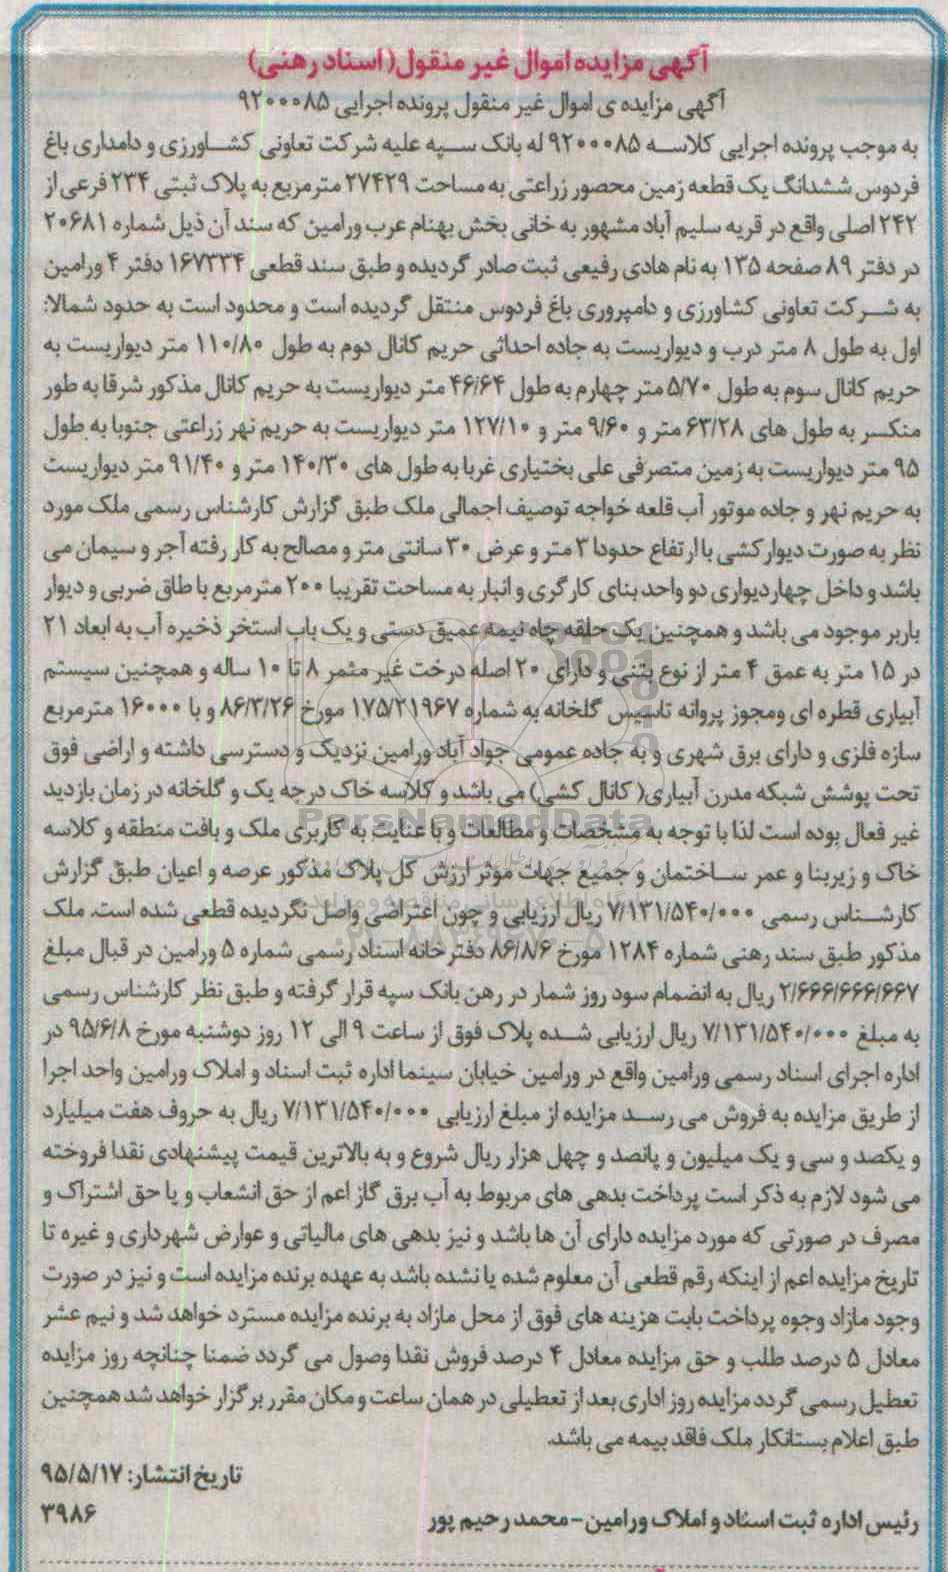 آگهی مزایده اموال غیر منقول( اسناد رهنی)
آگهی مزایده ی اموال غیر منقول پرونده اجرایی ۹۲۰۰۰۸۵
به موجب پرونده اجرایی کلاسه ۹۲۰۰۰۸۵ له بانک سپه علیه شرکت تعاونی کشاورزی و دامداری باغ
فردوس ششدانگ یک قطعه زمین محصور زراعتی به مساحت ۲۷۴۲۹ مترمربع به پلاک ثبتی ۲۳۴ فرعی از
۲۴۲ اصلی واقع در قریه سلیم آباد مشهور به خانی بخش بهنام عرب ورامین که سند آن ذیل شماره ۲۰۶۸۱
در دفتر ۸۹ صفحه ۱۳۵ به نام هادی رفیعی ثبت صادر گردیده و طبق سند قطعی ۱۶۷۳۳۴ دفتر ۴ ورامین
به شرکت تعاونی کشاورزی و دامپروری باغ فردوس منتقل گردیده است و محدود است به حدود شمالا:
اول به طول ۸ متر درب و دیواریست به جاده احداثی حریم کانال دوم به طول ۱۱۰/۸۰ متر دیواریست به
حریم کانال سوم به طول ۵/۷۰ متر چهارم به طول ۴۶/۶۴ متر دیواریست به حریم کانال مذکور شرقا به طور
منکسر به طول های ۶۳/۲۸ متر و ۹/۶۰ متر و ۱۲۷/۱۰ متر دیواریست به حریم نهر زراعتی جنوبا به طول
۹۵ متر دیواریست به زمین متصرفی علی بختیاری غربا به طول های ۱۴۰/۳۰ متر و ۹۱/۴۰ متر دیواریست
به حریم نهر و جاده موتور آب قلعه خواجه توصیف اجمالی ملک طبق گزارش کارشناس رسمی ملک مورد
نظر به صورت دیوارکشی با ارتفاع حدودا ۳ متر و عرض ۳۰ سانتی متر و مصالح به کار رفته آجر و سیمان می
باشد و داخل چهاردیواری دو واحد بنای کارگری و انبار به مساحت تقریبا ۲۰۰ مترمربع با طاق ضربی و دیوار
باربر موجود می باشد و همچنین یک حلقه چاه نیمه عمیق دستی و یک باب استخر ذخیره آب به ابعاد ۲۱
در ۱۵ متر به عمق ۴ متر از نوع بتنی و دارای ۲۰ اصله درخت غیر مثمر ۸ تا ۱۰ ساله و همچنین سیستم
آبیاری قطره ای ومجوز پروانه تاسیس گلخانه به شماره ۱۷۵/۲۱۹۶۷ مورخ ۸۶/۳/۲۶ و با ۱۶۰۰۰ مترمربع
سازه فلزی و دارای برق شهری و به جاده عمومی جواد آباد ورامین نزدیک و دسترسی داشته و اراضی فوق
تحت پوشش شبکه مدرن آبیاری( کانال کشی) می باشد و کلاسه خاک درجه یک و گلخانه در زمان بازدید
ParsNamadData
غیر فعال بوده است لذا با توجه به مشخصات و مطالعات و با عنایت به کاربری ملک و بافت منطقه و کلاسه
خاک و زیربنا و عمر ساختمان و جمیع جهات موثر ارزش کل پلاک مذکور عرصه و اعیان طبق گزارش
کارشناس رسمی ۷/۱۳۱/۵۴۰/۰۰۰ ریال ارزیابی و چون اعتراضی واصل نگردیده قطعی شده است. ملک
مذکور طبق سند رهنی شماره ۱۲۸۴ مورخ ۸۶/۸/۶ دفترخانه اسناد رسمی شماره ۵ ورامین در قبال مبلغ
۲/۶۶۶/۶۶۶/۶۶۷ ریال به انضمام سود روز شمار در رهن بانک سپه قرار گرفته و طبق نظر کارشناس رسمی
به مبلغ ۷/۱۳۱/۵۴۰/۰۰۰ ریال ارزیابی شده پلاک فوق از ساعت ۹ الی ۱۲ روز دوشنبه مورخ ۹۵/۶/۸ در
اداره اجرای اسناد رسمی ورامین واقع در ورامین خیابان سینما اداره ثبت اسناد و املاک ورامین واحد اجرا
از طریق مزایده به فروش می رسد مزایده از مبلغ ارزیابی ۷/۱۳۱/۵۴۰/۰۰۰ ریال به حروف هفت میلیارد
و یکصد و سی و یک میلیون و پانصد و چهل هزار ریال شروع و به بالاترین قیمت پیشنهادی نقدا فروخته
می شود لازم به ذکر است پرداخت بدهی های مربوط به آب برق گاز اعم از حق انشعاب و یا حق اشتراک و
مصرف در صورتی که مورد مزایده دارای آن ها باشد و نیز بدهی های مالیاتی و عوارض شهرداری و غیره تا
تاریخ مزایده اعم از اینکه رقم قطعی آن معلوم شده یا نشده باشد به عهده برنده مزایده است و نیز در صورت
وجود مازاد وجوه پرداخت بابت هزینه های فوق از محل مازاد به برنده مزایده مسترد خواهد شد و نیم عشر
معادل ۵ درصد طلب و حق مزایده معادل ۴ درصد فروش نقدا وصول می گردد ضمنا چنانچه روز مزایده
تعطیل رسمی گردد مزایده روز اداری بعد از تعطیلی در همان ساعت و مکان مقرر برگزار خواهد شد همچنین
طبق اعلام بستانکار ملک فاقد بیمه می باشد.
تاریخ انتشار: ۹۵/۵/۱۷
رئیس اداره ثبت اسناد و املاک ورامین - محمد رحیم پور
۳۹۸۶